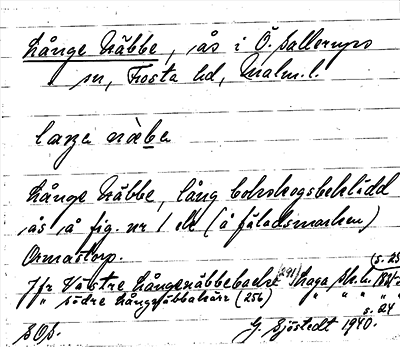 Långe Näbbe, ås i Ö. Sallerups
sn, Frosta hd, Malm. l.
Långe Näbbe, lång bokskogsbeklädd
ås å fig. nr 1 (å fäladsmarken)
Ormastorp.
Jfr Västre Långenäbbebacke (241) Haga
" södre Långenäbbakärr (256) " " " "
s. 24
SOS. G Sjöstedt 1940.